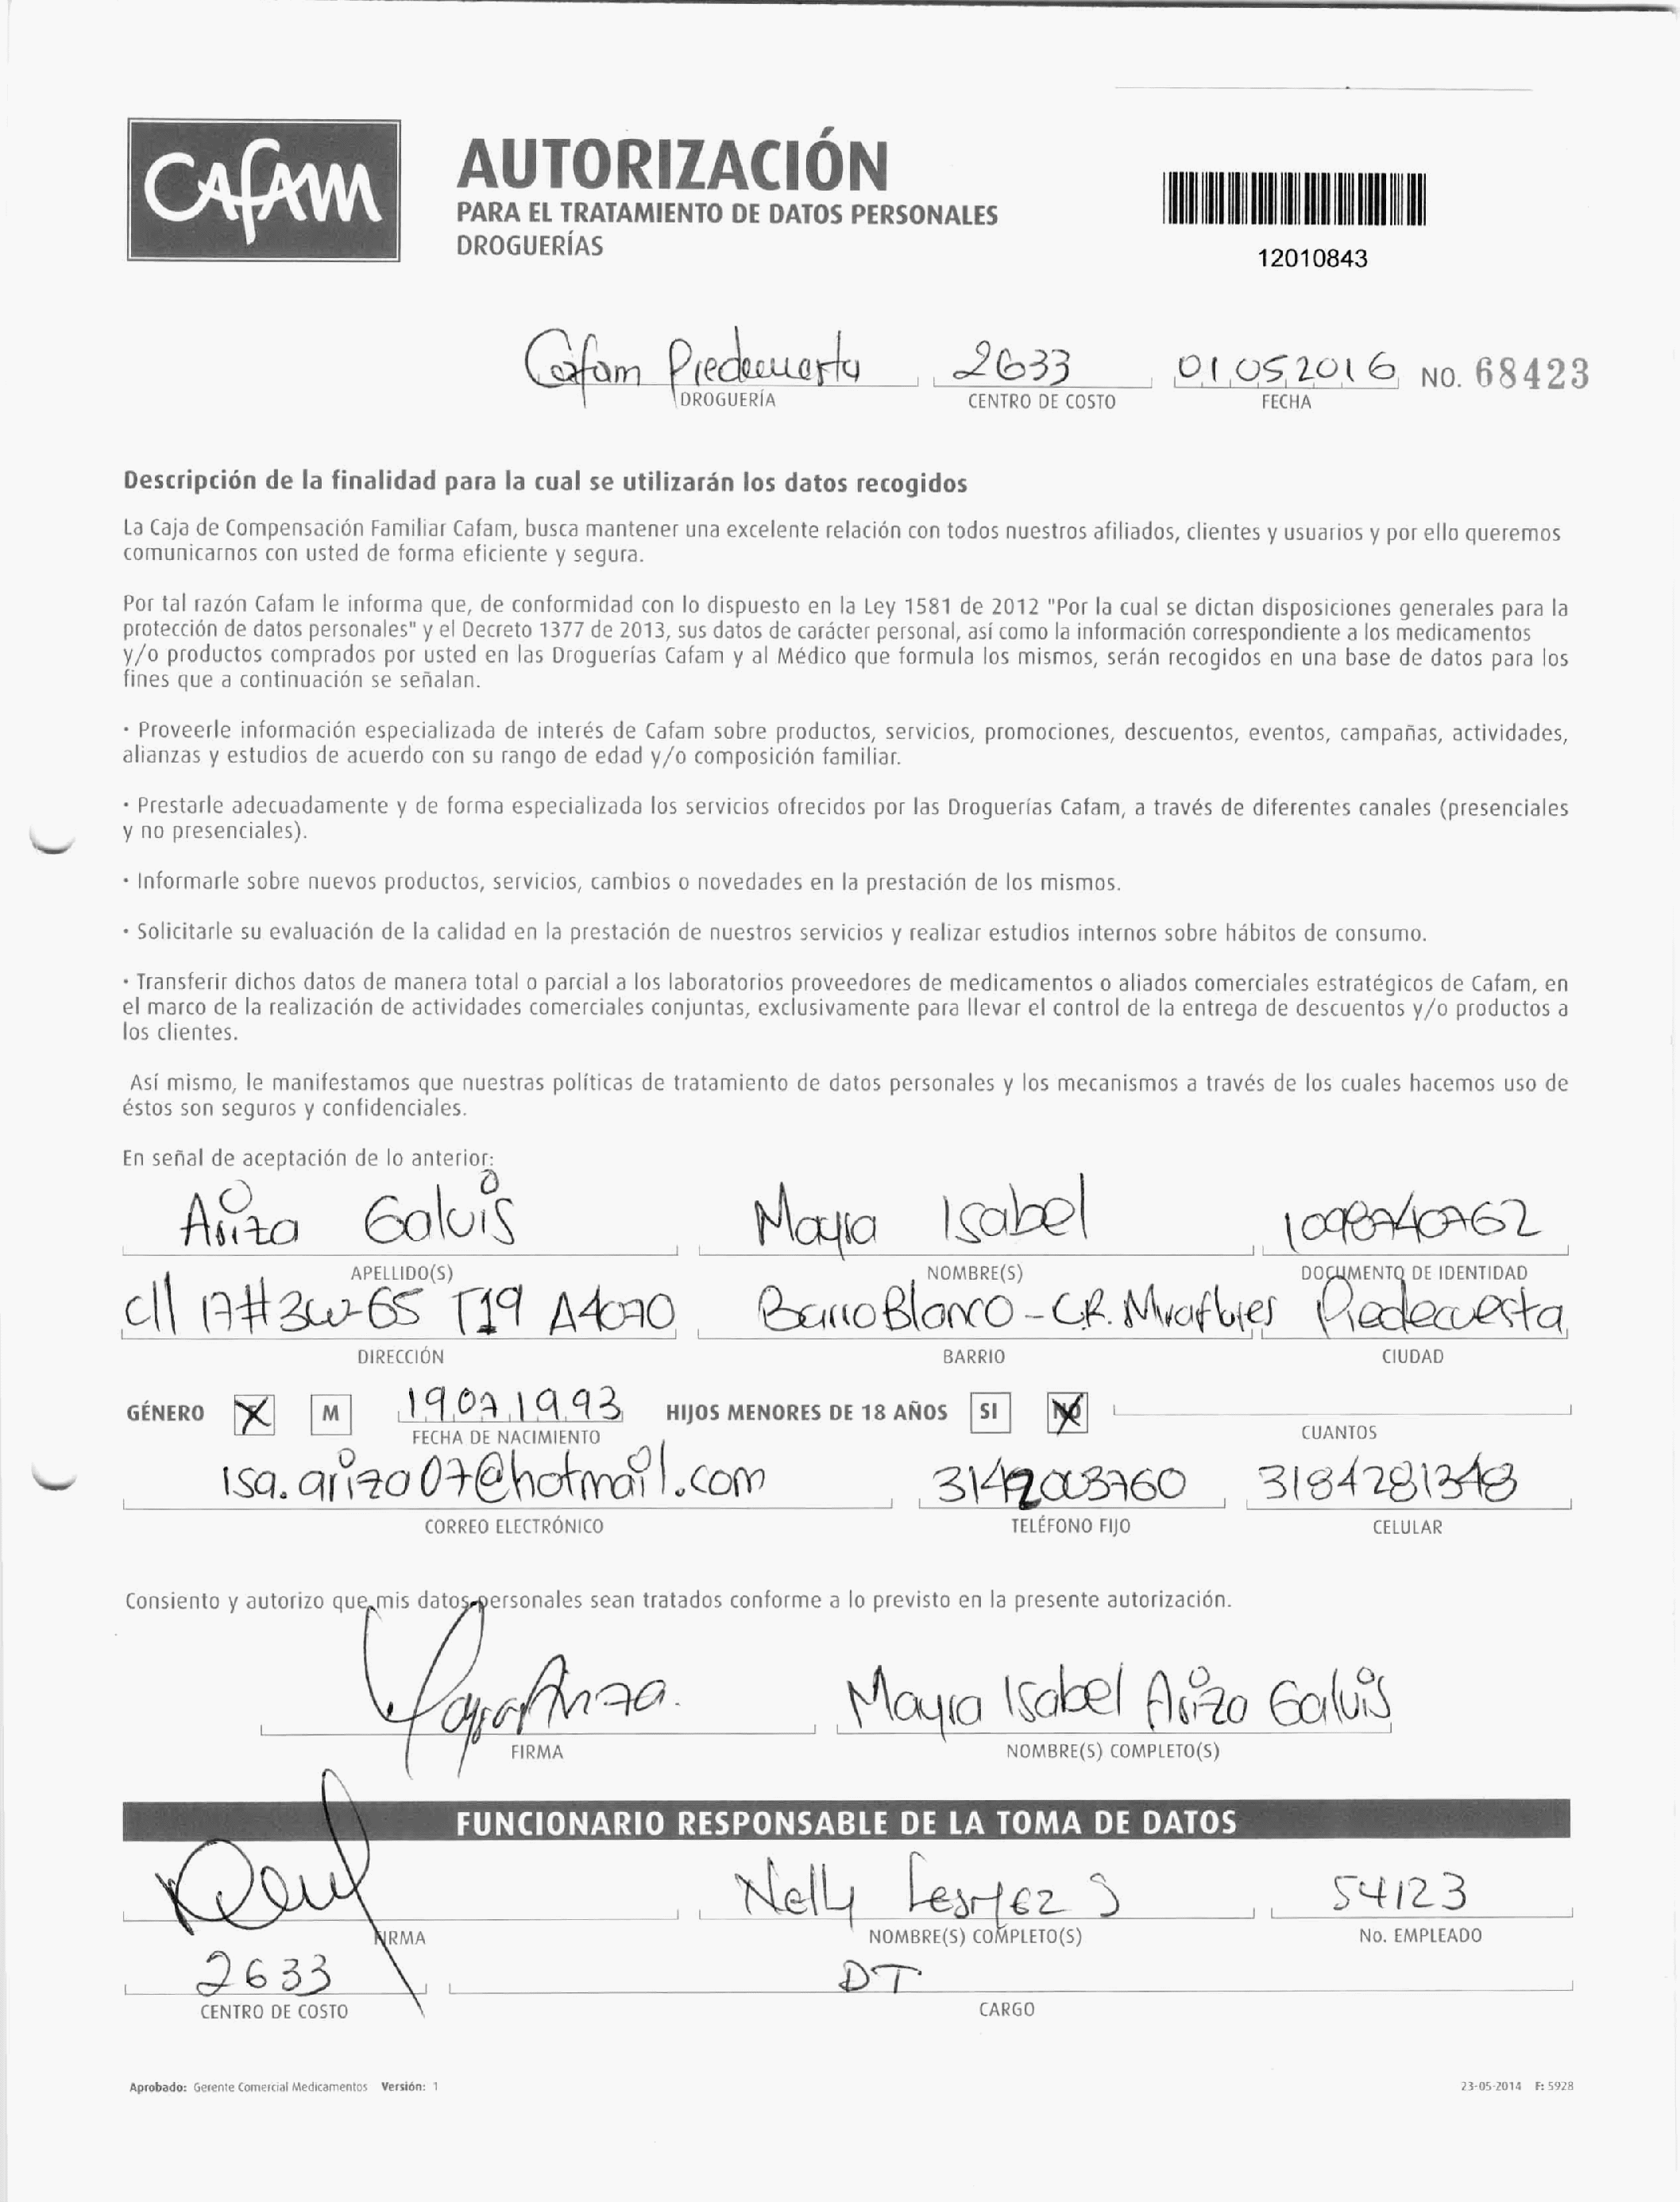 CAFAM
AUTORIZACIÓN
PARA EL TRATAMIENTO DE DATOS PERSONALES
DROGUERÍAS
12010843
Cafam Piedecuesta 2633 01 05 2016 NO. 68423
DROGUERÍA CENTRO DE COSTO FECHA
Descripción de la finalidad para la cual se utilizarán los datos recogidos
La Caja de Compensación Familiar Cafam, busca mantener una excelente relación con todos nuestros afiliados, clientes y usuarios y por ello queremos
comunicarnos con usted de forma eficiente y segura.
Por tal razón Cafam le informa que, de conformidad con lo dispuesto en la Ley 1581 de 2012 "Por la cual se dictan disposiciones generales para la
protección de datos personales" y el Decreto 1377 de 2013, sus datos de carácter personal, así como la información correspondiente a los medicamentos
y/o productos comprados por usted en las Droguerías Cafam y al Médico que formula los mismos, serán recogidos en una base de datos para los
fines que a continuación se señalan.
• Proveerle información especializada de interés de Cafam sobre productos, servicios, promociones, descuentos, eventos, campañas, actividades,
alianzas y estudios de acuerdo con su rango de edad y/o composición familiar.
• Prestarle adecuadamente y de forma especializada los servicios ofrecidos por las Droguerías Cafam, a través de diferentes canales (presenciales
y no presenciales).
• Informarle sobre nuevos productos, servicios, cambios o novedades en la prestación de los mismos.
• Solicitarle su evaluación de la calidad en la prestación de nuestros servicios y realizar estudios internos sobre hábitos de consumo.
• Transferir dichos datos de manera total o parcial a los laboratorios proveedores de medicamentos o aliados comerciales estratégicos de Cafam, en
el marco de la realización de actividades comerciales conjuntas, exclusivamente para llevar el control de la entrega de descuentos y/o productos a
los clientes.
Así mismo, le manifestamos que nuestras políticas de tratamiento de datos personales y los mecanismos a través de los cuales hacemos uso de
éstos son seguros y confidenciales.
En señal de aceptación de lo anterior:
Ariza Galvis Mayra Isabel 1098740762
APELLIDO(S) NOMBRE(S) DOCUMENTO DE IDENTIDAD
cll 17#3w-65 T19 A4070 Barro Blanco - C.R. Miraflores Piedecuesta
DIRECCIÓN BARRIO CIUDAD
GÉNERO X M 19 07 1993 HIJOS MENORES DE 18 AÑOS SI NO
FECHA DE NACIMIENTO CUANTOS
isa.ariza07@hotmail.com 3142003760 3184281348
CORREO ELECTRÓNICO TELÉFONO FIJO CELULAR
Consiento y autorizo que mis datos personales sean tratados conforme a lo previsto en la presente autorización.
Mayra Ariza. Mayra Isabel Ariza Galvis
FIRMA NOMBRE(S) COMPLETO(S)
FUNCIONARIO RESPONSABLE DE LA TOMA DE DATOS
Nelly S 54123
FIRMA NOMBRE(S) COMPLETO(S) No. EMPLEADO
2633 DT
CENTRO DE COSTO CARGO
Aprobado: Gerente Comercial Medicamentos Versión: 1 23-05-2014 F: 5928